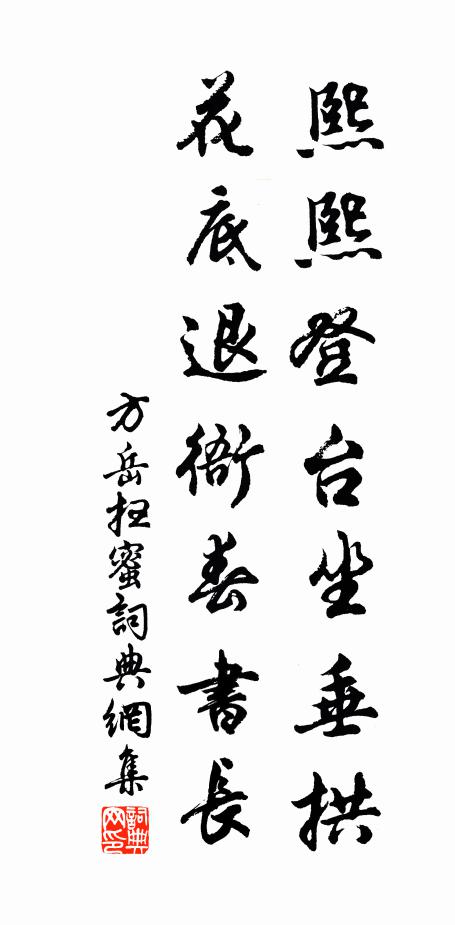 熙熙登台坐垂拱
花底退衙春書長
方岳蜜詞典網集
詞典
网印